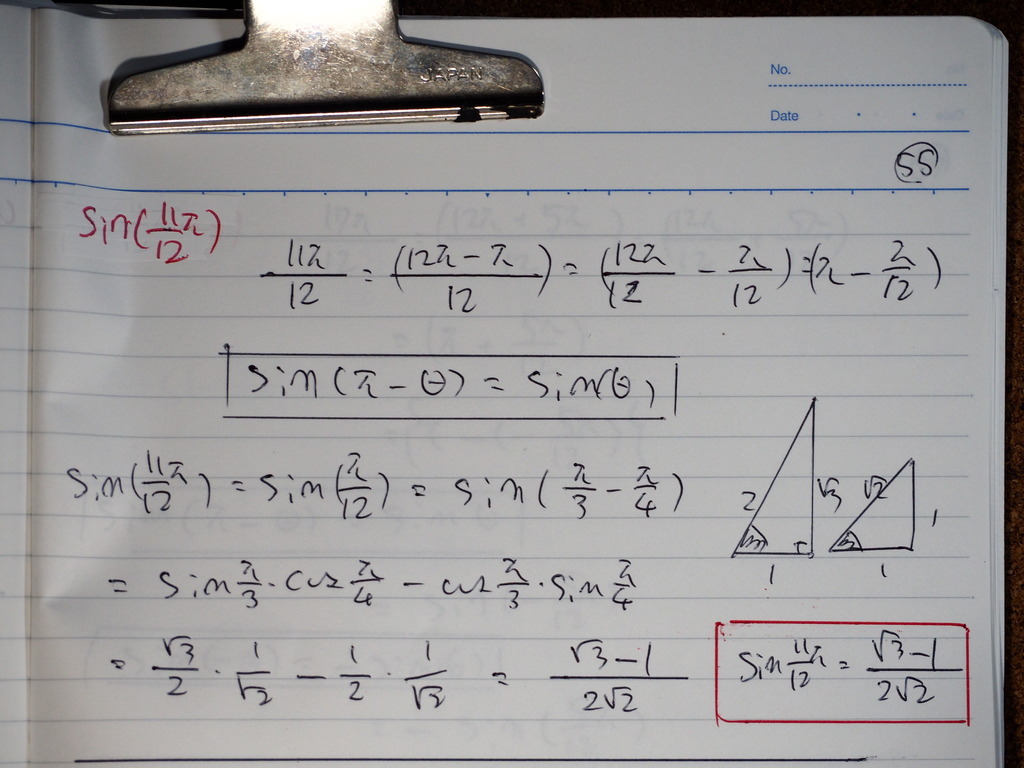 JAPAN
No.
Date
55
sin(11π/12)
11π/12 = (12π - π)/12 = (12π/12 - π/12) = (π - π/12)
sin(π - θ) = sin(θ)
sin(11π/12) = sin(π/12) = sin(π/3 - π/4)
2 √3 √2 1
1 1
= sin π/3 · cos π/4 - cos π/3 · sin π/4
= √3/2 · 1/√2 - 1/2 · 1/√2 = √3-1/2√2
sin 11π/12 = √3-1/2√2